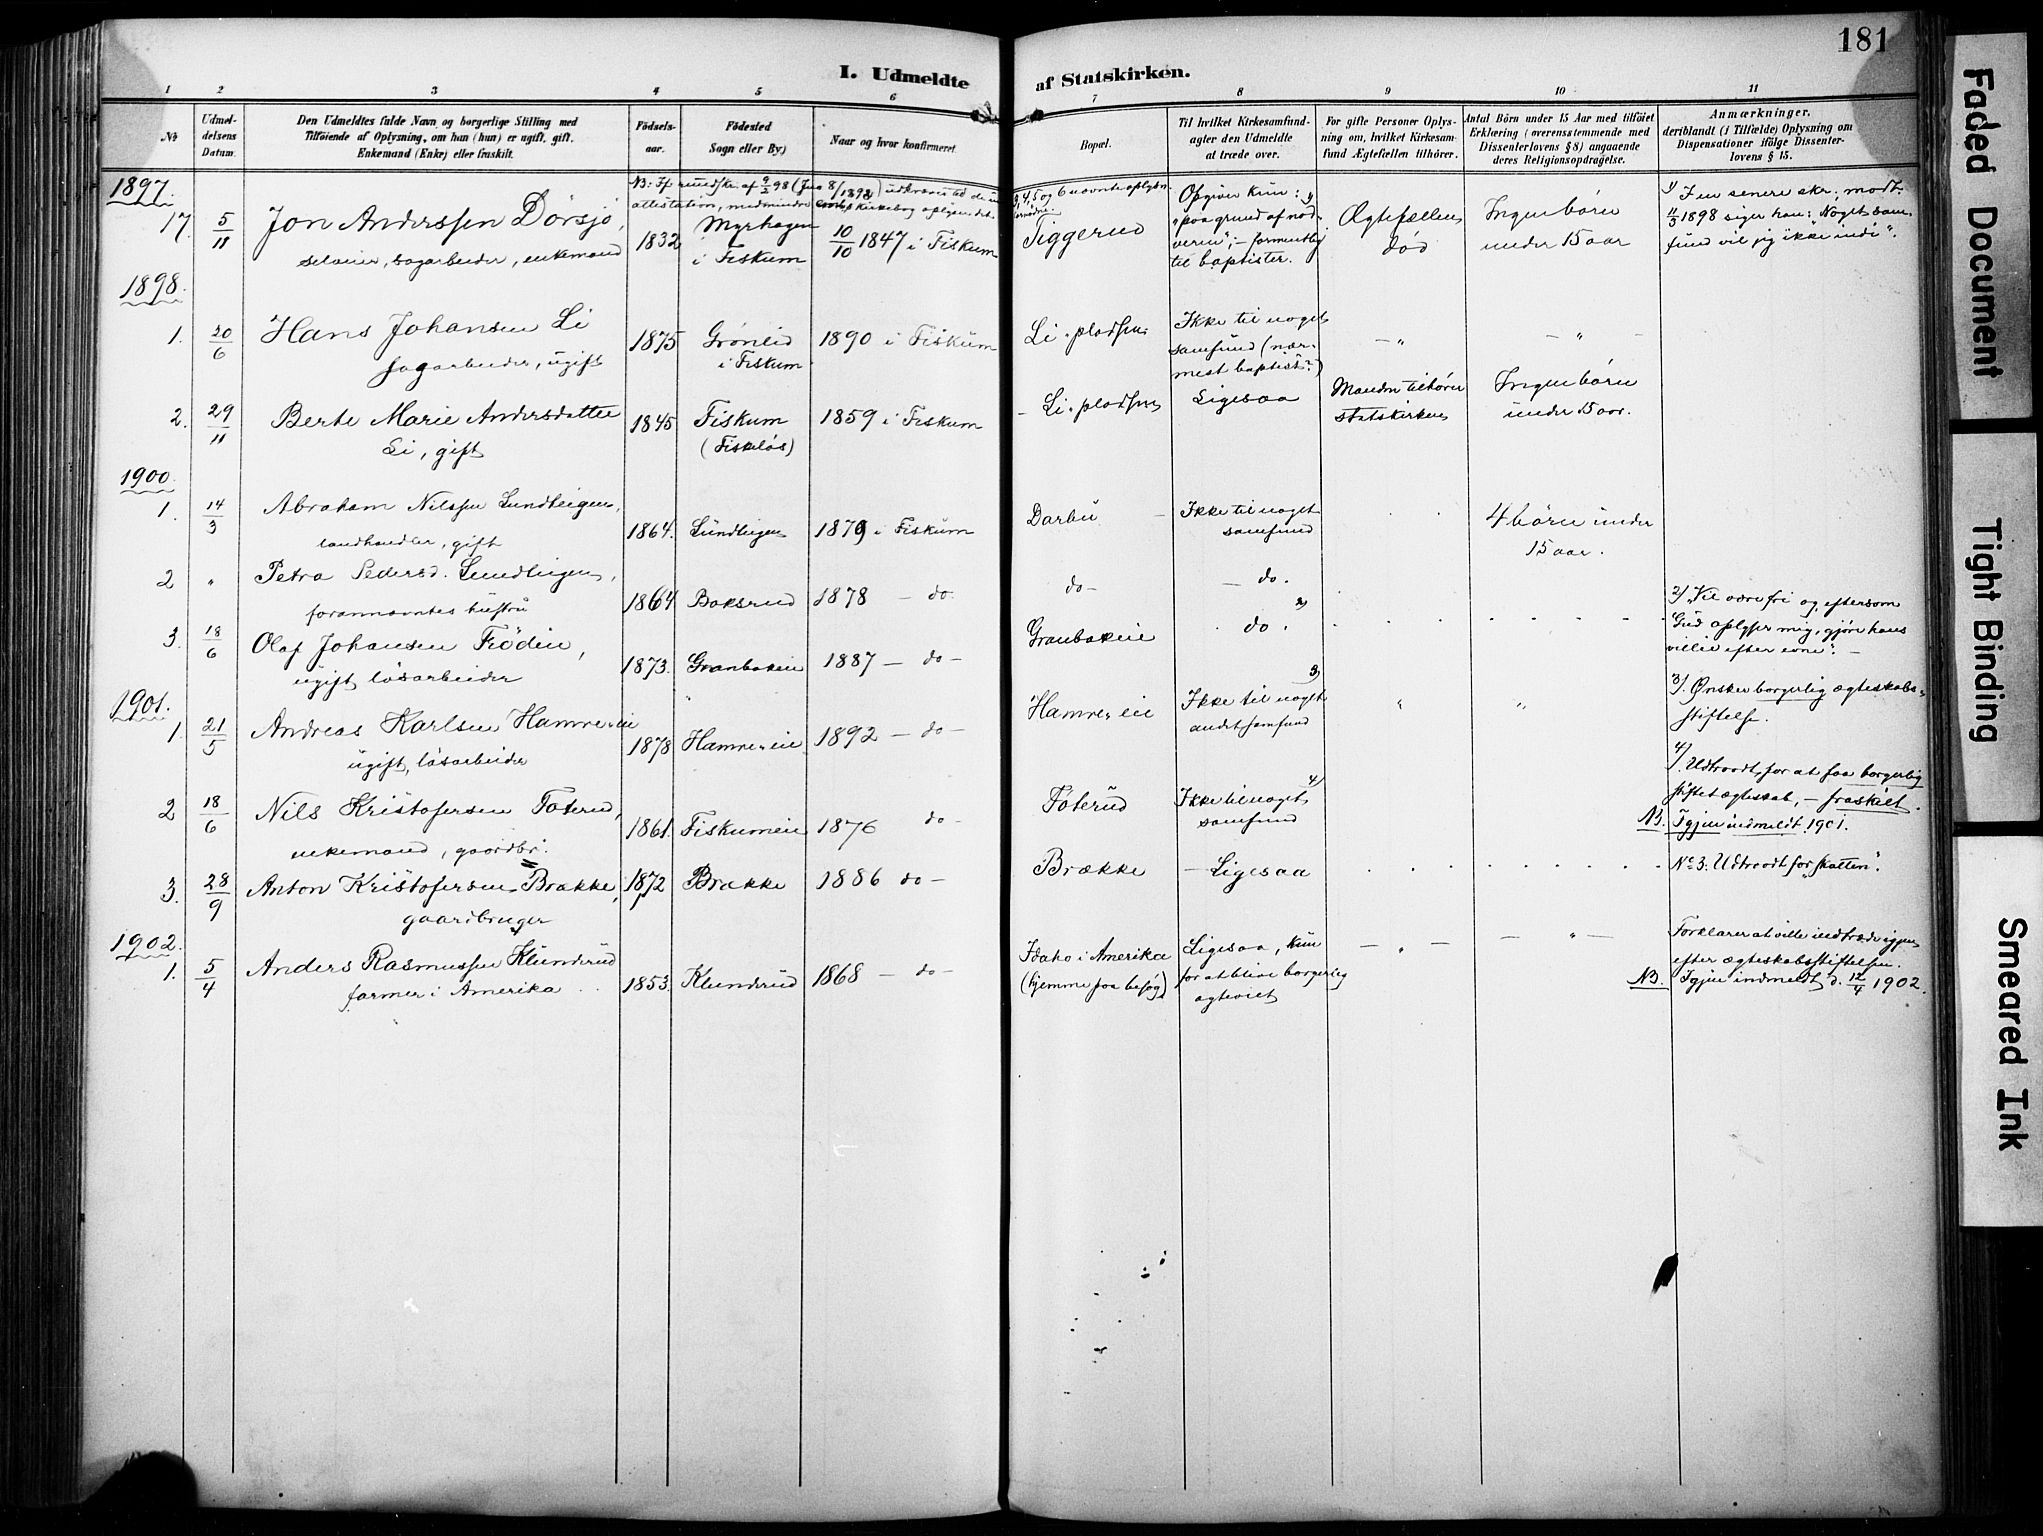 181
I. Udmeldte af Statskirken.
1 2 3 4 5 6 7 8 9 10 11
No
Udmel-
delsens
Datum.
Den Udmeldtes fulde Navn og borgerlige Stilling med
Tilföiende af Oplysning, om han (hun) er ugift, gift,
Enkemand (Enke) eller fraskilt.
Födsels-
aar.
Födested
Sogn eller By)
Naar og hvor konfirmeret
Bopæl.
Til hvilket Kirkesamfund-
agter den Udmeldte
at træde over.
For gifte Personer Oplys-
ning om, hvilket Kirkesam-
fund Ægtefællen tilhörer.
Antal Börn under 15 Aar med tilföiet
Erklæring (overensstemmende med
Dissenterlovens § 8) angaaende
deres Religionsopdragelse.
Anmærkninger,
deriblandt (i Tilfælde) Oplysning om
Dispensationer ifölge Dissenter-
lovens § 15.
1897.
17. 5/11
Jon Anderssen Dörsjö,
sagarbeider, enkemand
1832
Myrhagen
i Fiskum
10/10 1847 i Fiskum
Tiggerud
Opgiver kun: 1)
"paa grund af nad-
veren"; - formentlig
til baptister.
Ægtefællen
död
Ingen börn
under 15 aar
1) I en senere skr. modt.
4/3 1898 siger han: "Noget sam-
fund vil jeg ikke ind i".
1898.
1. 20/6
Hans Johansen Li
sagarbeider, ugift
1875
Grönlid
i Fiskum
1890 i Fiskum
Li-pladsen
Ikke til noget
samfund (nær-
mest baptist?)
- " - - " -
2. 29/11
Berte Marie Andersdatter
Li, gift
1845
Fiskum
(Fiskelös)
1859 i Fiskum
- Li-pladsen
Ligesaa
Manden tilhörer
statskirken
Ingen börn
under 15 aar.
1900.
1. 14/3
Abraham Nilssen Lundteigen,
landhandler, gift
1864.
Lundteigen
1879 i Fiskum
Darbu
Ikke til noget
samfund
4 börn under
15 aar.
2 "
Petra Pedersd. Lundteigen,
forannævntes hustru
1864
Baksrud
1878 - do.
do -
- do.
3. 18/6
Olaf Johansen Frödin,
ugift, lösarbeider
1873.
Granbakeie
1887 - do -
Granbakeie
do. 2)
2) "Vil være fri og, eftersom
Gud oplyser mig, gjöre hans
villie efter evne". -
1901.
1. 21/5
Andreas Karlsen Hamre-eie
ugift, lösarbeider
1878
Hamre-eie
1892 - do -
Hamre-eie
Ikke til noget 3)
andet samfund
" "
3) Önsker borgerlig ægteskabs-
stiftelse.
2 18/6
Nils Kristofersen Foterud,
enkemand, gaardbr.
1861.
Fiskumeie
1876 do -
Foterud
Ikke til noget 4)
samfund
4) Udtraadt for at faa borgerlig
stiftet ægteskab, - fraskilt.
NB. Igjen indmeldt 1901.
3. 28/9
Anton Kristofersen Brække,
gaardbruger
1872
Brække
1886 do -
Brække
- Ligesaa
No 3: Udtraadt for "skatten".
1902.
1. 5/4
Anders Rasmussen Klunderud
farmer i Amerika
1853.
Klunderud
1868 - do -
Idaho i Amerika
(hjemme paa besög)
Ligesaa, kun
for at blive borgerlig
ægteviet
- " - - " -
Forklarer at ville indtræde igjen
efter ægteskabsstiftelsen.
NB. Igjen indmeldt d. 12/4 1902.
Faded Document
Tight Binding
Smeared Ink